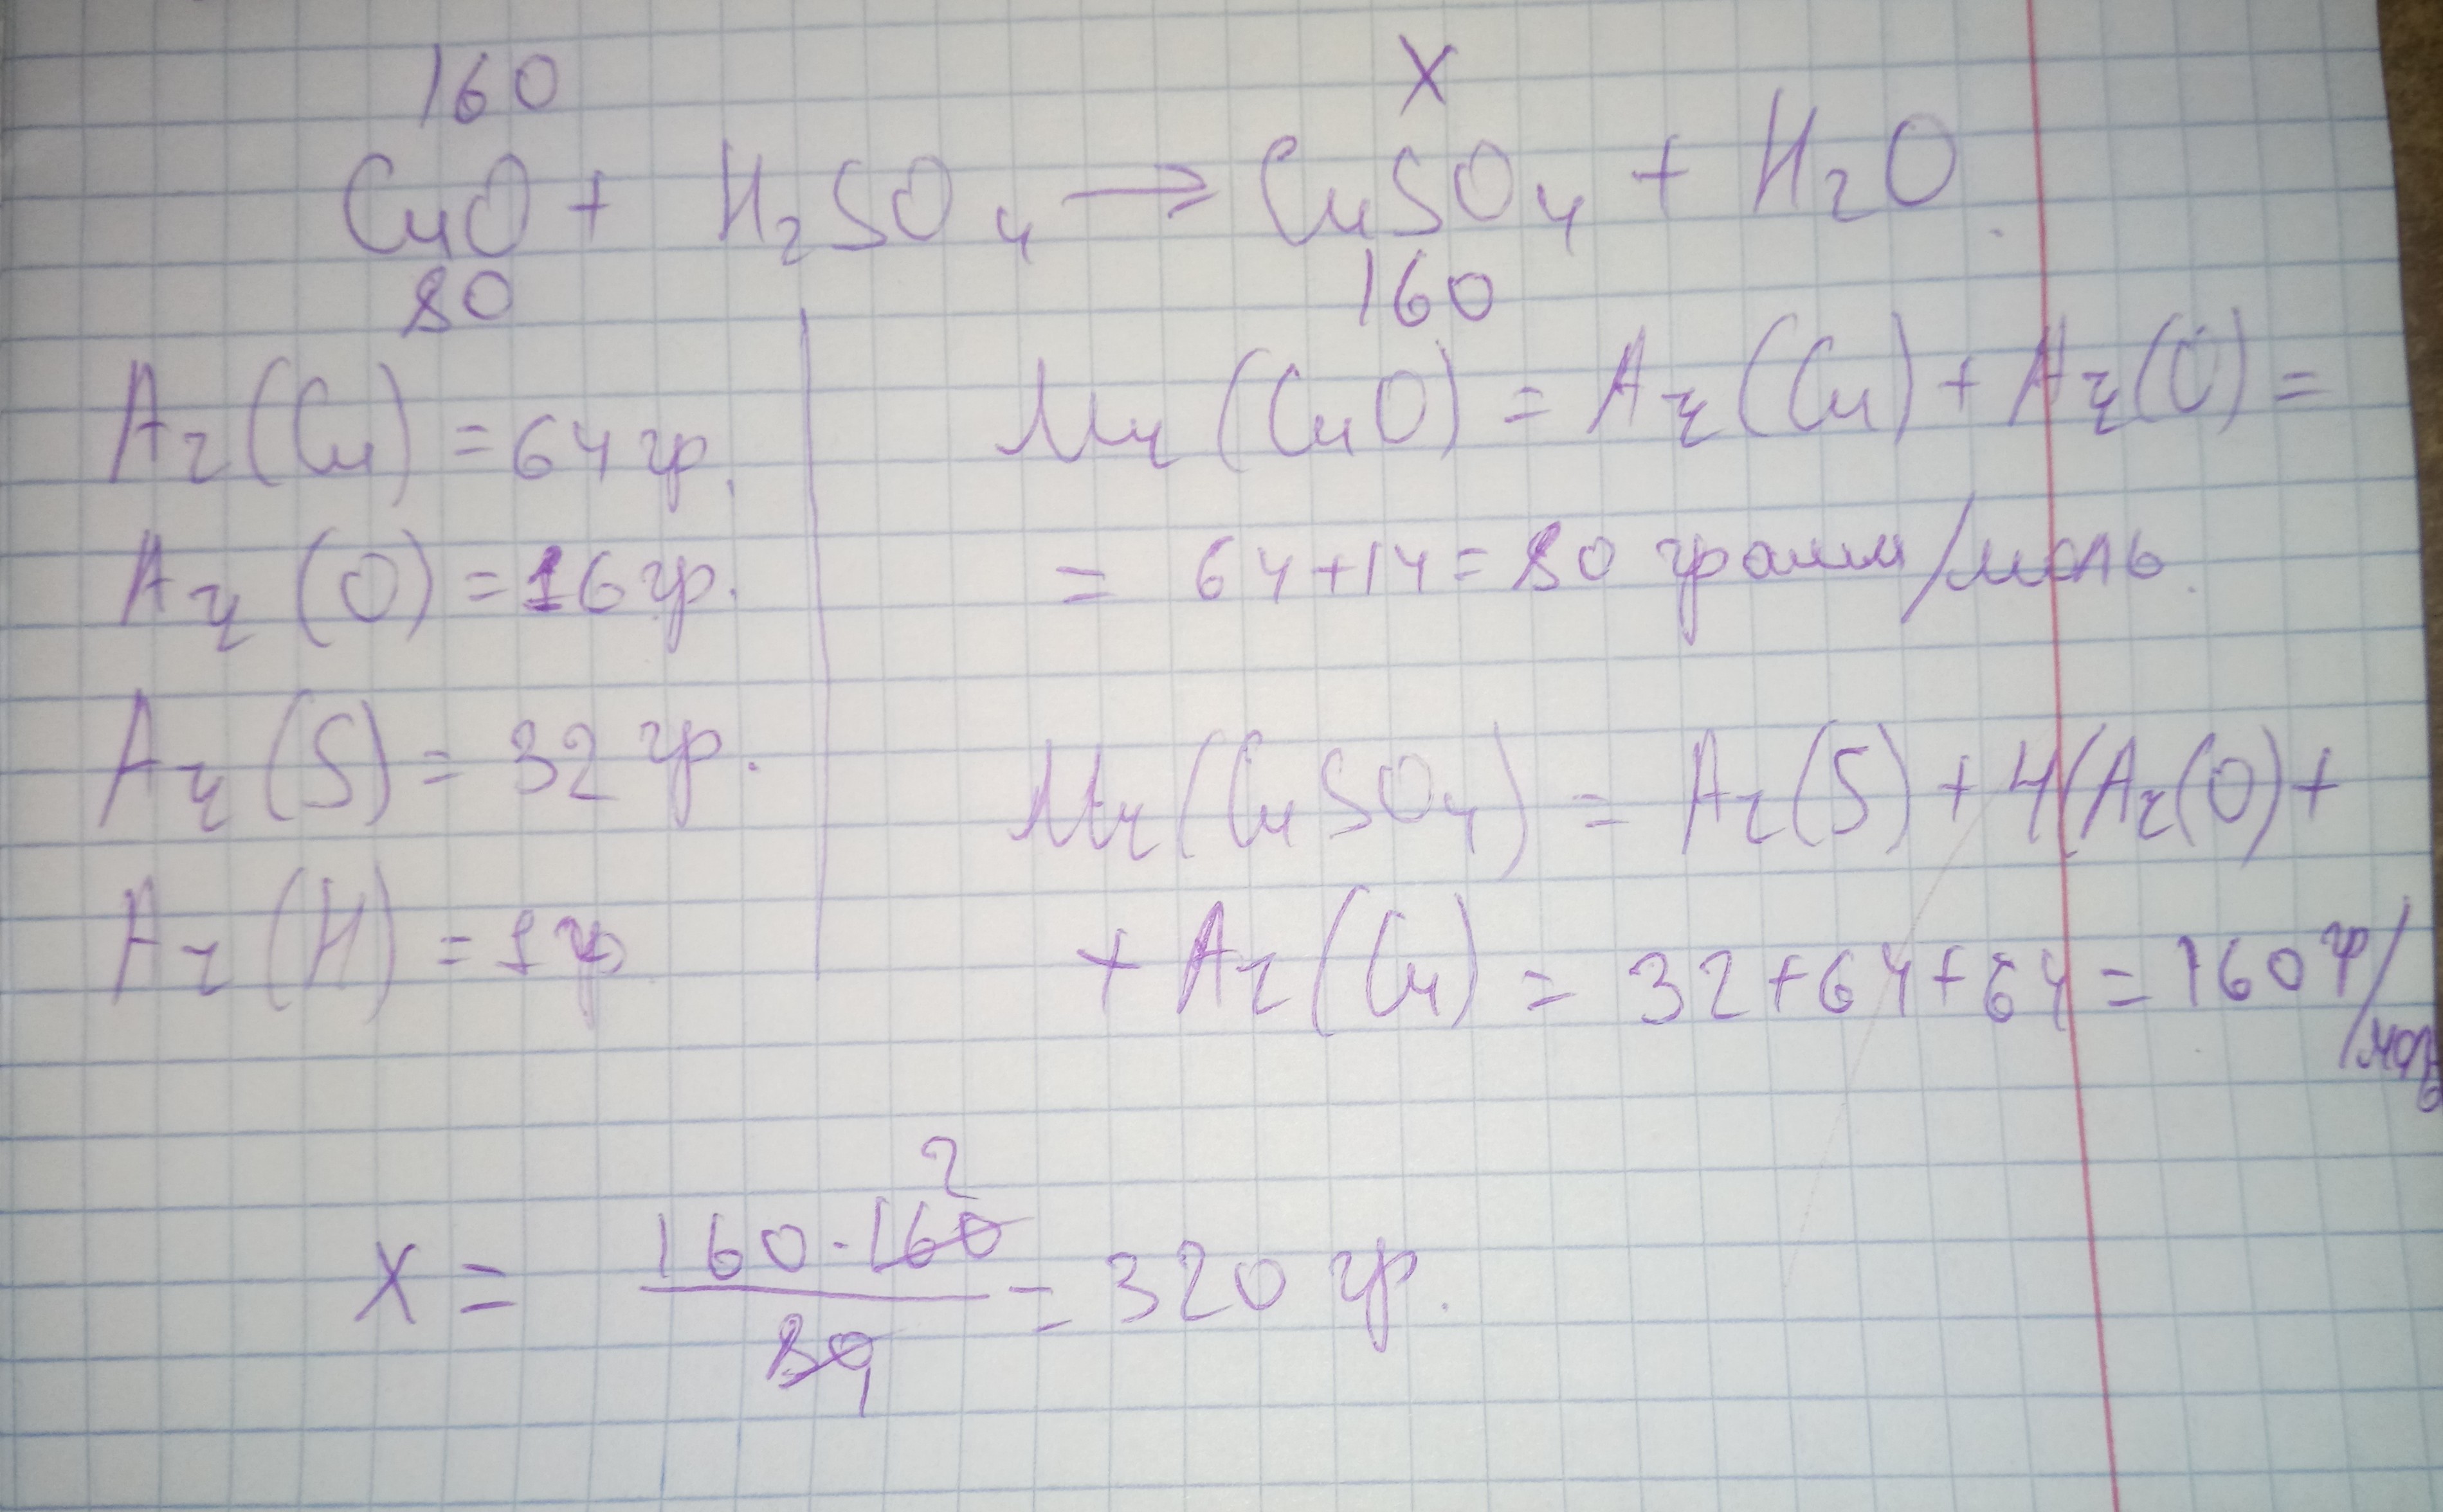 160 X
CuO + H₂SO₄ → CuSO₄ + H₂O.
80 160
Ar(Cu) = 64 гр.
Ar(O) = 16 гр.
Ar(S) = 32 гр.
Ar(H) = 1 гр
Mr(CuO) = Ar(Cu) + Ar(O) =
= 64+14 = 80 грамм/моль.
Mr(CuSO₄) = Ar(S) + 4(Ar(O) +
+ Ar(Cu) = 32+64+64 = 160 гр/моль
2
X = 160·160 / 80 = 320 гр.
1